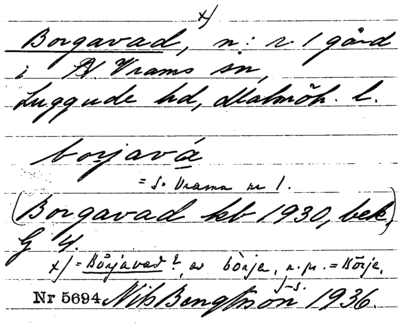 x)
Borgavad, n:r 1 gård
i N. Vrams sn,
Luggude hd, Malmöh. l.
borjavá
= S. Vrams nr 1.
(Borgavad kb 1930, bek,
G 4.
x) = Börjavad? av börja, n.pr. = Börje,
Nr 5694 Nils Bengtsson 1936.